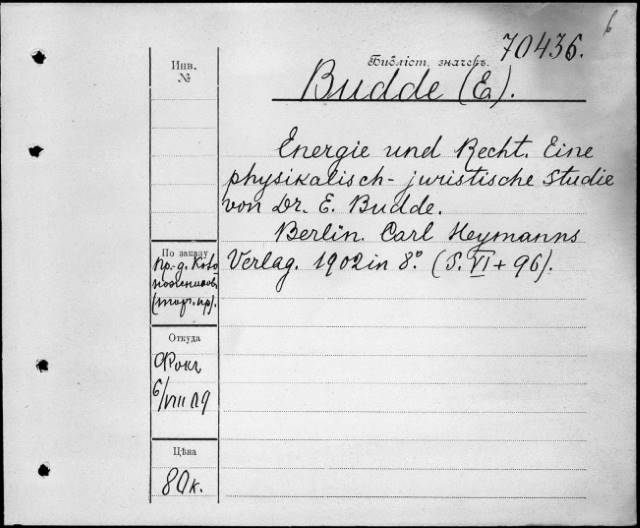 6
70436.
Библіот. значекъ.
Budde (E.).
Инв.
№
Energie und Recht. Eine
physikalisch-juristische Studie
von Dr. E. Budde.
Berlin. Carl Heymanns
Verlag. 1902 in 8° (S. VI + 96).
По заказу
пр.-д.
(торг. пр).
Откуда
Фокъ
6/VIII 09
Цѣна
80 к.